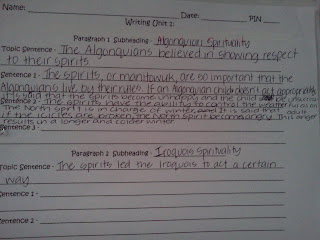 Name:
Date: PIN
Writing Unit 2:
Paragraph 1 Subheading - Algonquian Spirituality
Topic Sentence - The Algonquians believed in showing respect
to their spirits.
Sentence 1 - The spirits, or manitowuk, are so important that the
Algonquians live by their rules. If an Algonquian child doesn't act appropriately
it is said that the spirits become unhappy and the child be
Sentence 2 - The spirits have the ability to control the weather
The North Spirit is in charge of winter and it is said that
if the icicles are broken, the North Spirit became angry. This anger
results in a longer and colder winter.
Sentence 3 -
Paragraph 2 Subheading - Iroquois Spirituality
Topic Sentence - The spirits led the Iroquois to act a certain
way
Sentence 1 -
Sentence 2 -